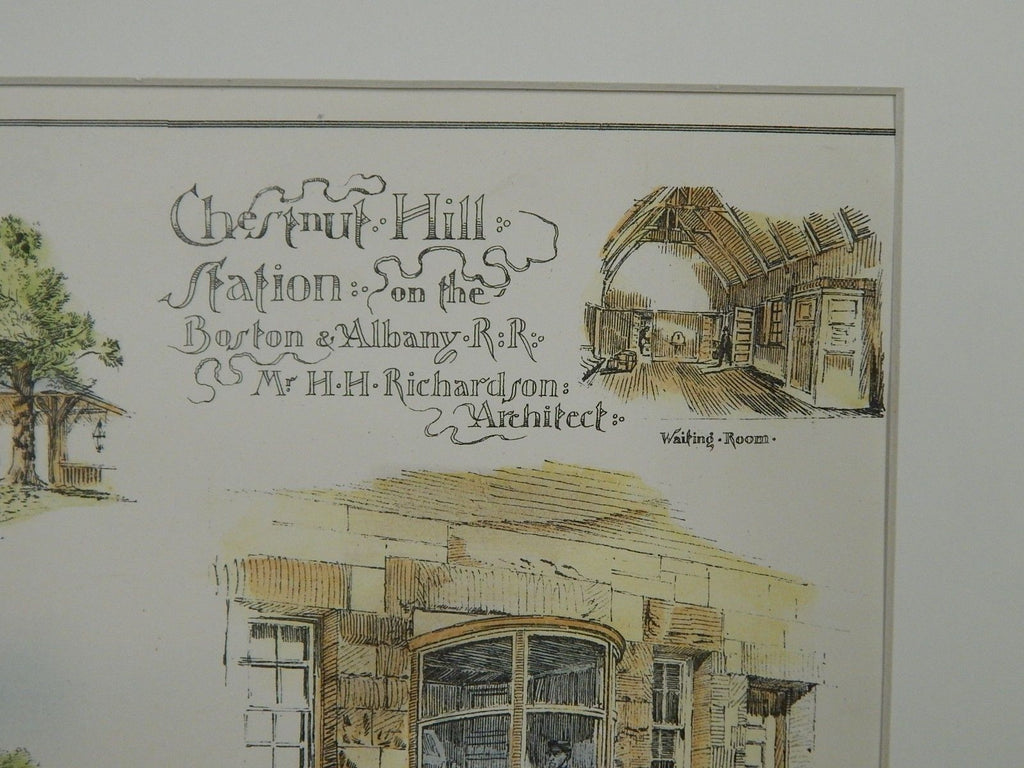 Chestnut · Hill :
Station : on the
Boston & Albany · R : R :
Mr H · H · Richardson :
Architect :
Waiting · Room ·